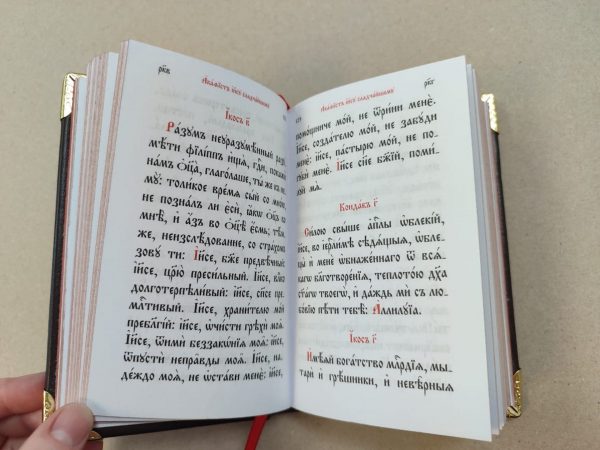 рк҃в
А҆ка́ѳїстъ і҆и҃сꙋ сладча́йшемꙋ
І҆́косъ в҃
Ра́зꙋмъ неꙋразꙋмѣ́нный разꙋ
мѣ́ти фїлі́ппъ и҆щѧ̀, гдⷭ҇и, покажѝ
на́мъ ѻ҆ц҃а̀, глаго́лаше, ты́ же къ не
мꙋ̀: толи́кое вре́мѧ сы́й со мно́ю,
не позна́лъ ли є҆сѝ, ꙗ҆́кѡ ѻ҆ц҃ъ во
мнѣ̀, и҆ а҆́зъ во ѻ҆ц҃ѣ̀ є҆́смь; тѣ́м
же, неизслѣ́дованне, со стра́хомъ
зовꙋ́ ти: І҆и҃се, бж҃е предвѣ́чный:
і҆и҃се, цр҃ю̀ преси́льный. І҆и҃се, влⷣко
долготерпѣли́вый: і҆и҃се, сп҃се пре
млⷭ҇тивый. І҆и҃се, храни́телю мо́й
пребл҃гі́й: і҆и҃се, ѡ҆чи́сти грѣхѝ моѧ̑.
І҆и҃се, ѿимѝ беззакѡ́нїѧ моѧ̑: і҆и҃се,
ѿпꙋстѝ непра̑вды моѧ̑. І҆и҃се, на
де́ждо моѧ̀, не ѡ҆ста́ви менє̀: і҆и҃се,
рк҃г
А҆ка́ѳїстъ і҆и҃сꙋ сладча́йшемꙋ
помо́щниче мо́й, не ѿри́ни менє̀.
І҆и҃се, созда́телю мо́й, не забꙋ́ди
менє̀: і҆и҃се, па́стырю мо́й, не по
гꙋбѝ менє̀. І҆и҃се сн҃е бж҃їй, поми́
лꙋй мѧ̀.
Конда́къ г҃
Си́лою свы́ше а҆пⷭ҇лы ѡ҆блекі́й,
і҆и҃се, во і҆ерⷭ҇ли́мѣ сѣдѧ́щыѧ, ѡ҆блецы̀
и҆ менѐ ѡ҆бнаже́ннаго ѿ всѧ́
кагѡ бл҃готворе́нїѧ, теплото́ю дх҃а
ст҃а́гѡ твоегѡ̀, и҆ да́ждь мѝ съ лю
бо́вїю пѣ́ти тебѣ̀: А҆ллилꙋ́їа.
І҆́косъ г҃
И҆мѣ́ѧй бога́тство млⷭ҇рдїѧ, мы
тари̑ и҆ грѣ́шники, и҆ невѣ̑рныѧ